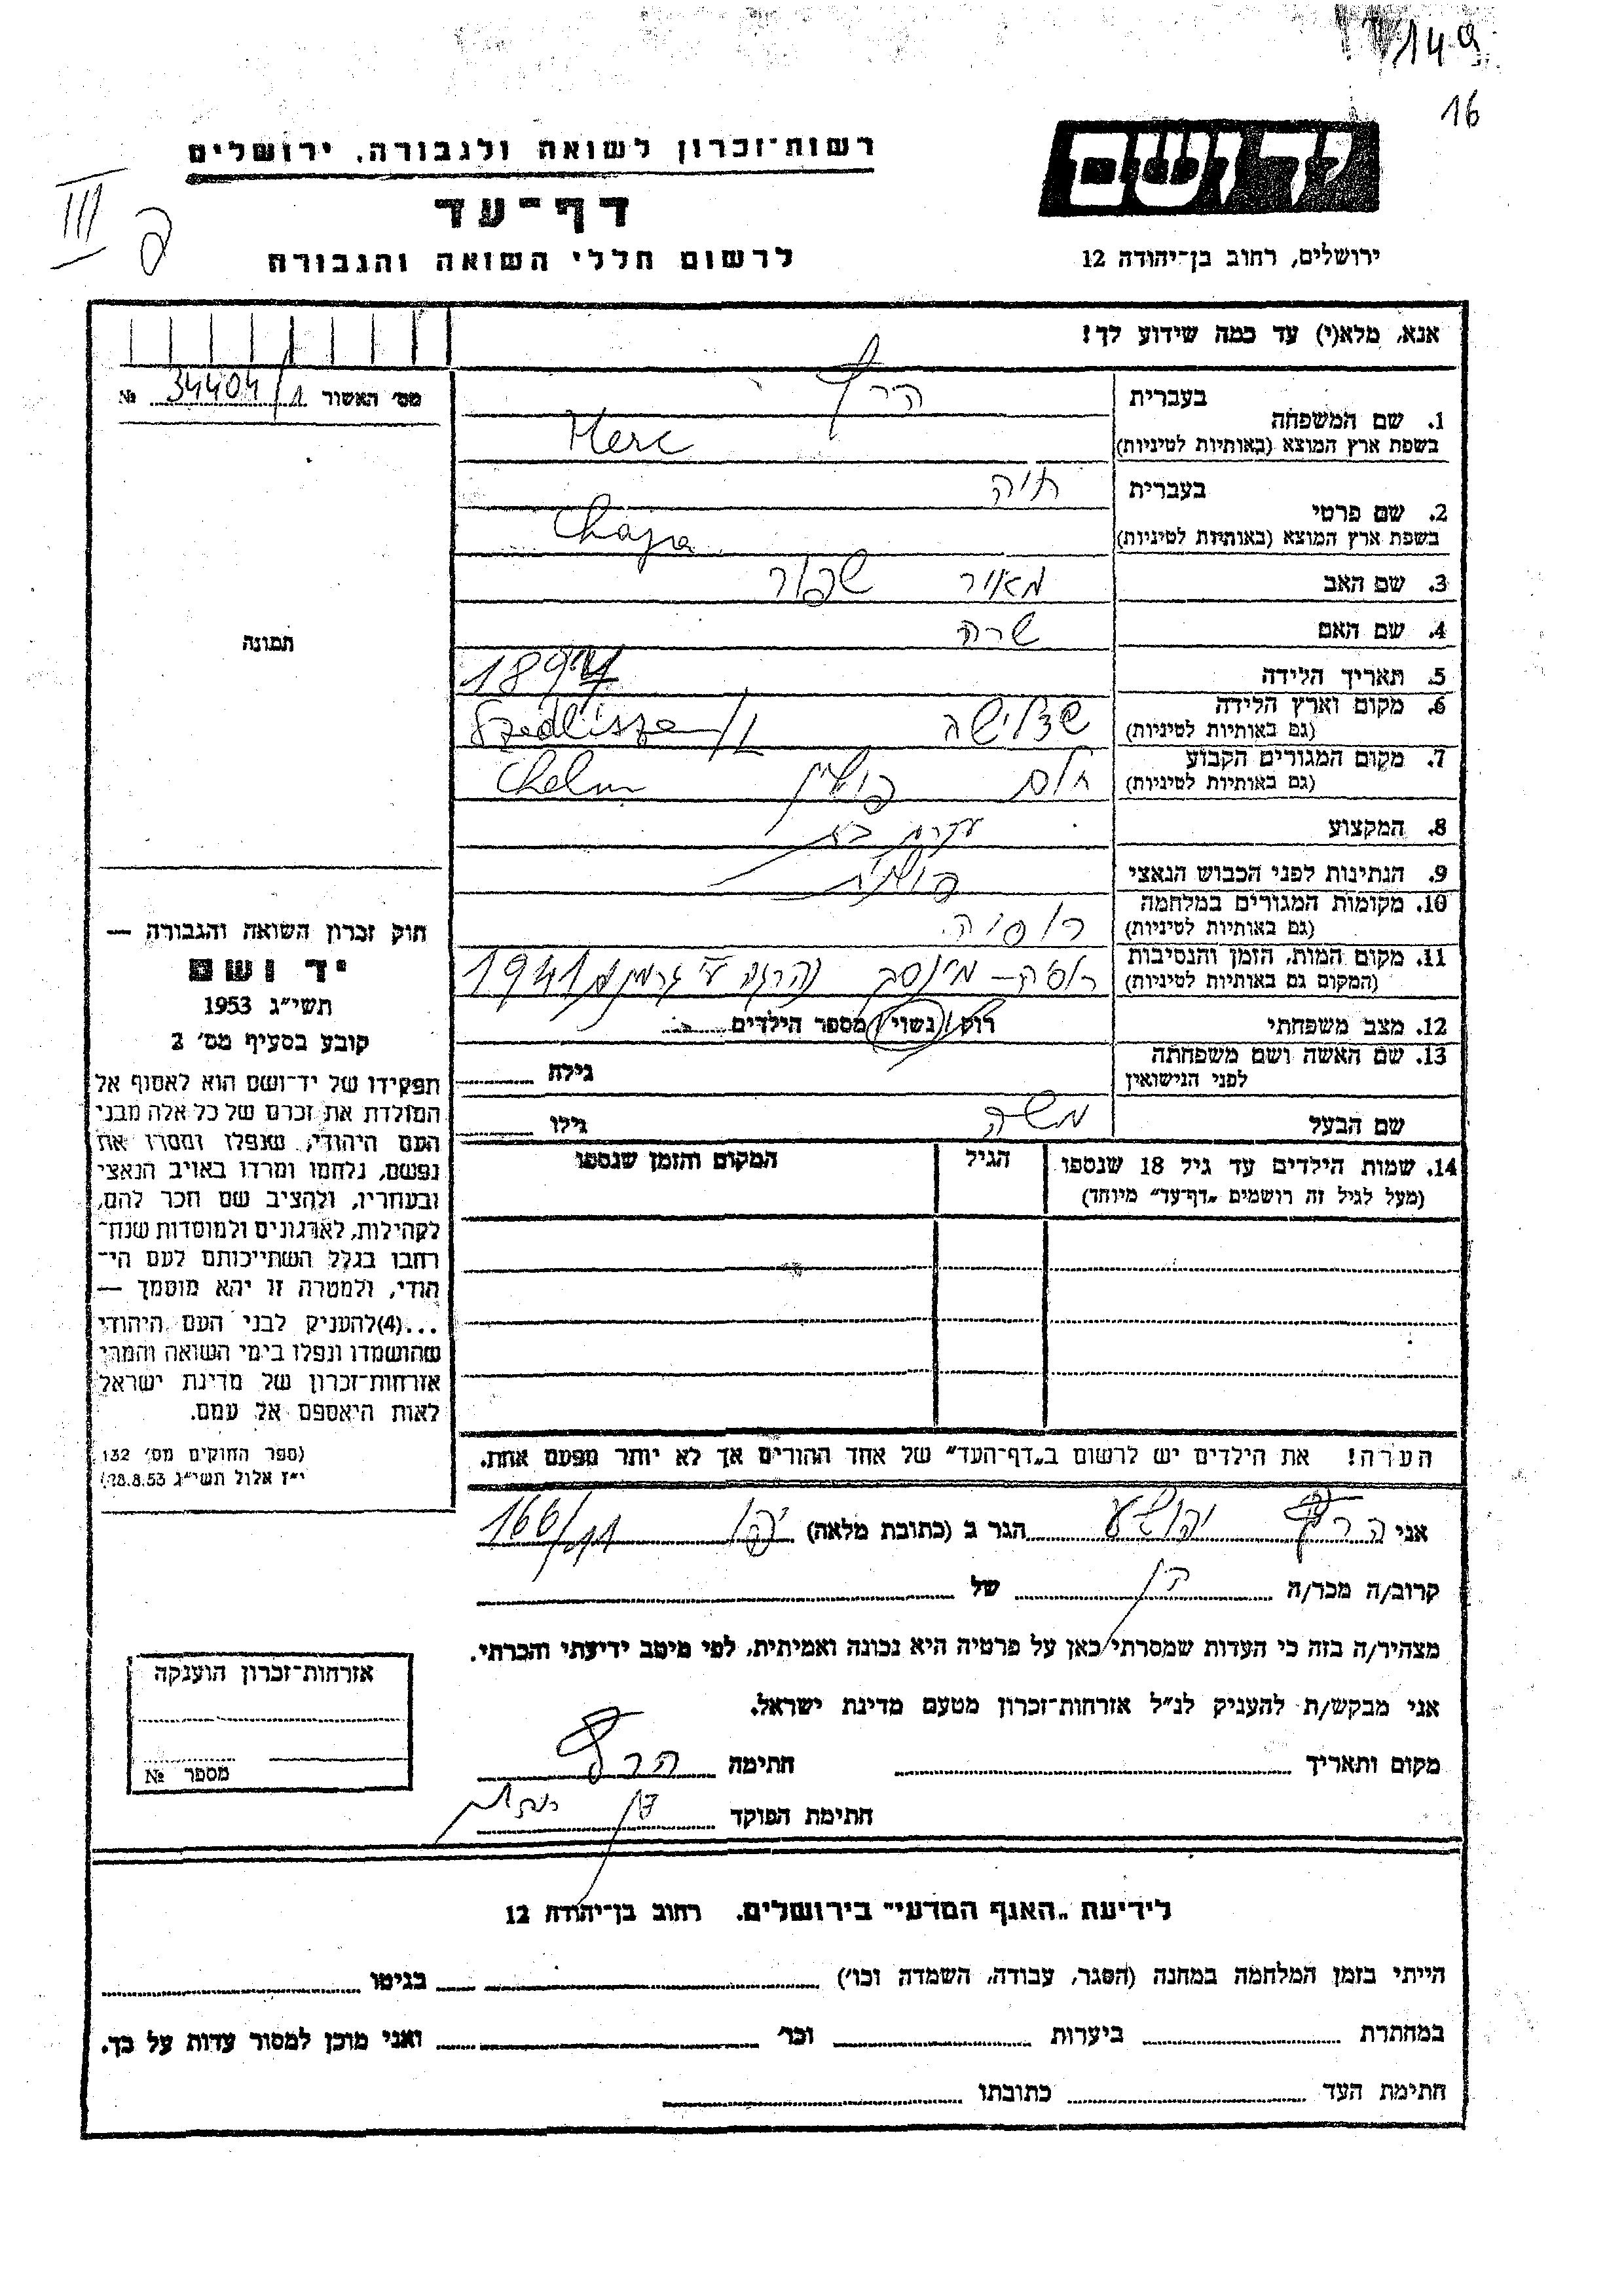 149
16
יד ושם
ירושלים, רחוב בן־יהודה 12
רשות־זכרון לשואה ולגבורה, ירושלים
דף־עד
לרשום חללי השואה והגבורה
III
אנא, מלא(י) עד כמה שידוע לך!
מס׳ האשור 34404/1 №
תמונה
1. שם המשפחה
בעברית הרץ
בשפת ארץ המוצא (באותיות לטיניות) Herc
2. שם פרטי
בעברית חיה
בשפת ארץ המוצא (באותיות לטיניות) Chaja
3. שם האב מאיר
4. שם האם שרה
5. תאריך הלידה
6. מקום וארץ הלידה
(גם באותיות לטיניות) Szedliszze/L
7. מקום המגורים הקבוע
(גם באותיות לטיניות) חלם פולין Chelm
8. המקצוע עקרת בית
9. הנתינות לפני הכבוש הנאצי פולנית
10. מקומות המגורים במלחמה
(גם באותיות לטיניות) רוסיה
11. מקום המות, הזמן והנסיבות
(המקום גם באותיות לטיניות) רוסיה – מינסק נהרגה ע״י גרמנים 1941
12. מצב משפחתי רווק / נשוי / מספר הילדים
13. שם האשה ושם משפחתה
לפני הנישואין
גילה
שם הבעל משה
גילו
14. שמות הילדים עד גיל 18 שנספו
(מעל לגיל זה רושמים „דף־עד״ מיוחד)
הגיל
המקום והזמן שנספו
הערה! את הילדים יש לרשום ב„דף־העד״ של אחד ההורים אך לא יותר מפעם אחת.
חוק זכרון השואה והגבורה —
יד ושם
תשי״ג 1953
קובע בסעיף מס׳ 2
תפקידו של יד־ושם הוא לאסוף אל
המולדת את זכרם של כל אלה מבני
העם היהודי, שנפלו ומסרו את
נפשם, נלחמו ומרדו באויב הנאצי
ובעוזריו, ולהציב שם וזכר להם,
לקהילות, לארגונים ולמוסדות שנח־
רבו בגלל השתייכותם לעם הי־
הודי, ולמטרה זו יהא מוסמך —
...(4) להעניק לבני העם היהודי
שהושמדו ונפלו בימי השואה והמרי
אזרחות־זכרון של מדינת ישראל
לאות היאספם אל עמם.
(ספר החוקים מס׳ 132
י״ז אלול תשי״ג 28.8.53)
אני הרץ יהושע הגר ב (כתובת מלאה) יפו 166/11
קרוב/ה מכר/ה בן של
מצהיר/ה בזה כי העדות שמסרתי כאן על פרטיה היא נכונה ואמיתית, לפי מיטב ידיעתי והכרתי.
אני מבקש/ת להעניק לנ״ל אזרחות־זכרון מטעם מדינת ישראל.
מקום ותאריך חתימה הרץ
חתימת הפוקד
אזרחות־זכרון הוענקה
מספר №
לידיעת „האגף המדעי״ בירושלים, רחוב בן־יהודה 12
הייתי בזמן המלחמה במחנה (הסגר, עבודה, השמדה וכו׳) בגיטו
במחתרת ביערות וכו׳ ואני מוכן למסור עדות על כך.
חתימת העד כתובתו